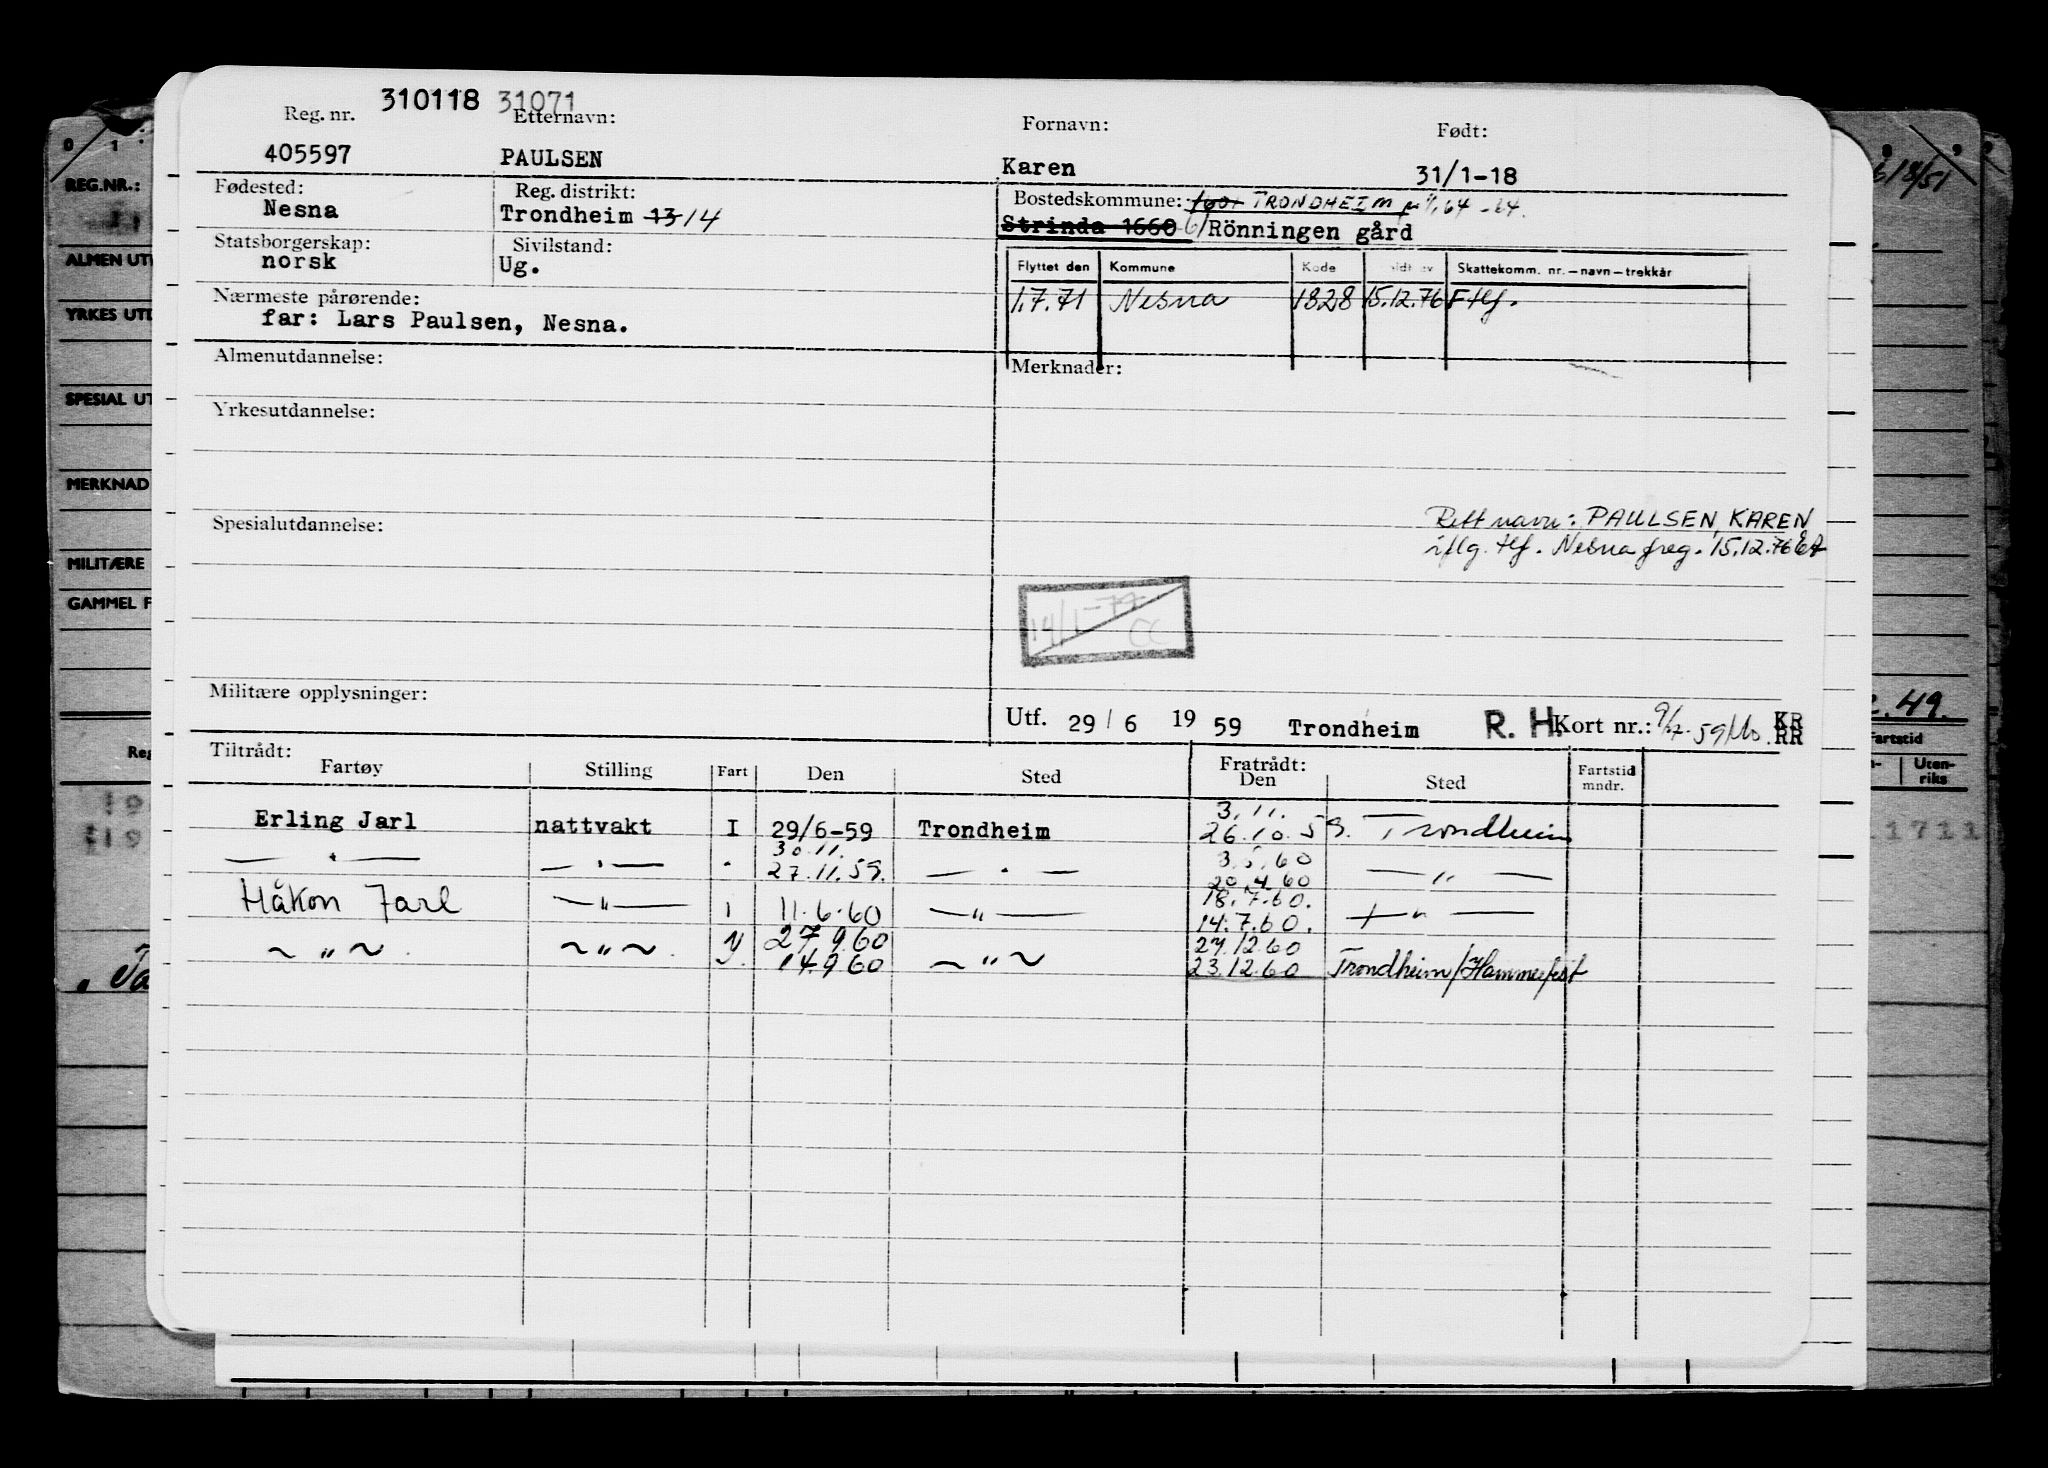 310118 31071
Reg. nr. Etternavn: Fornavn: Født:
405597 PAULSEN Karen 31/1-18
Fødested: Reg. distrikt: Bostedskommune: 1601 TRONDHEIM
Nesna Trondheim 13 14 Strinda 1660 Rönningen gård
Statsborgerskap: Sivilstand:
norsk Ug.
Flyttet den Kommune Kode Skattekomm. nr.—navn—trekkår
1.7.71 Nesna 1828 15.12.76 F tlf.
Nærmeste pårørende:
far: Lars Paulsen, Nesna.
Almenutdannelse: Merknader:
Yrkesutdannelse:
Rett navn: PAULSEN, KAREN
iflg. tlf. Nesna freg. 15.12.76
Spesialutdannelse:
14/1-77 CC
Militære opplysninger:
Utf. 29/6 19 59 Trondheim R. H. Kort nr.: 9/7.59 KR RR
Tiltrådt: Fratrådt:
Fartøy Stilling Fart Den Sted Den Sted Fartstid mndr.
3.11.
Erling Jarl nattvakt I 29/6-59 Trondheim 26.10.59. Trondheim
30.11. 3.5.60
— " — — " — " 27.11.59. — " — 20.4.60 — " —
18.7.60.
Håkon Jarl — " — 1 11.6.60 — " — 14.7.60. — " —
27.9.60 27.12.60
~ " ~ ~ " ~ 14.9.60 ~ " ~ 23.12.60 Trondheim/Hammerfest
0 1
REG.NR.:
ALMEN UT
YRKES UTD
SPESIAL UT
MERKNAD
MILITÆRE
GAMMEL F
Reg
6/8/51
49.
Fartstid
Uten-
riks
1711